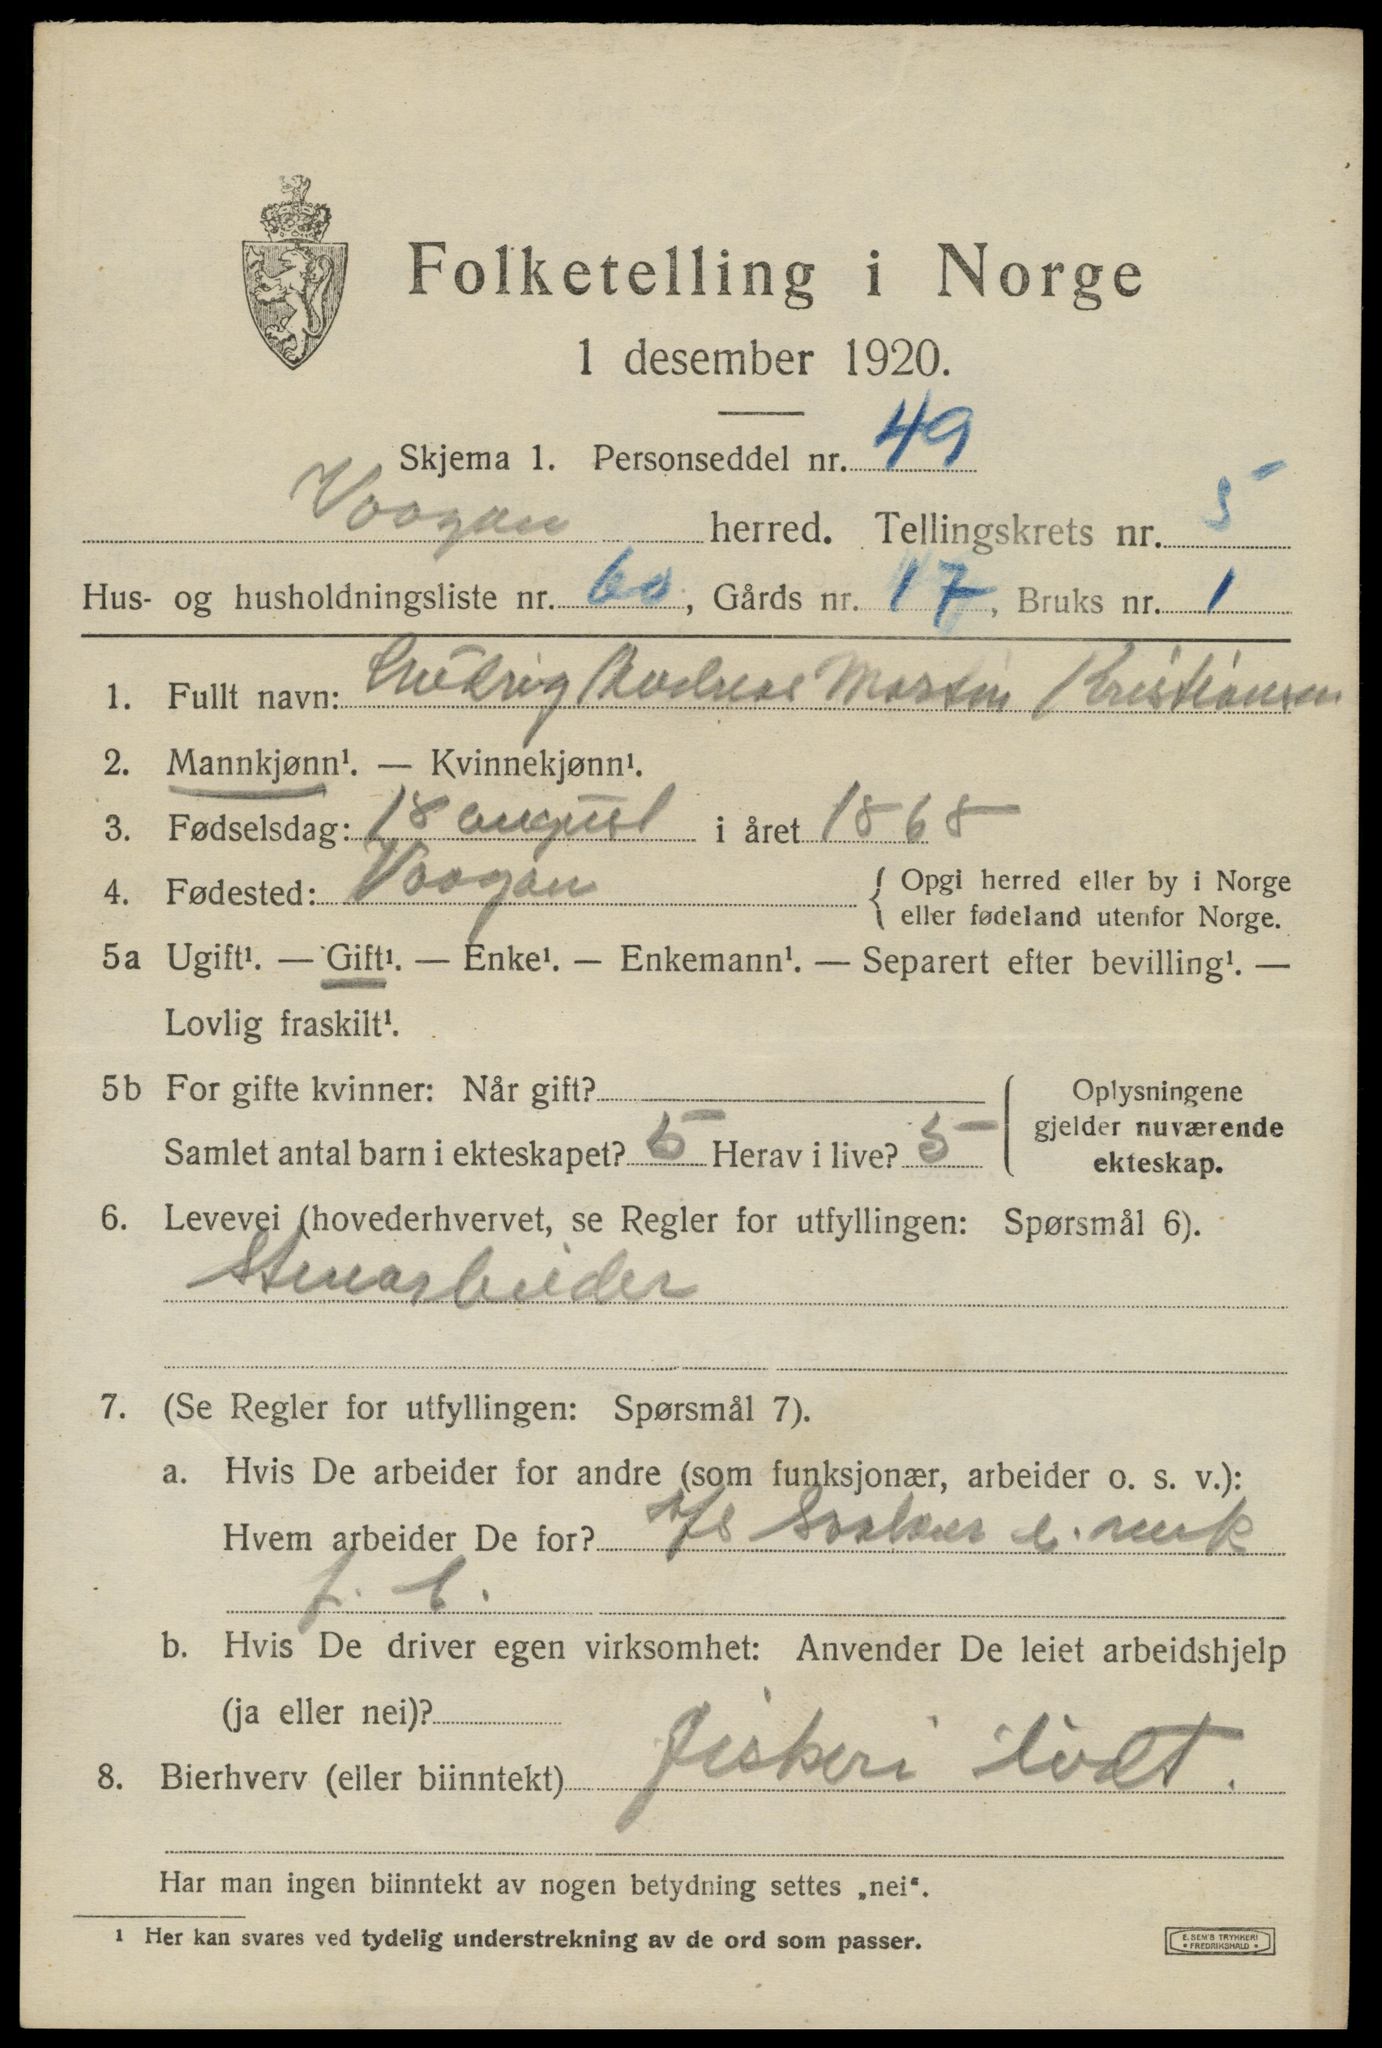 Folketelling i Norge
1 desember 1920.
Skjema 1. Personseddel nr. 49
Vaagan herred. Tellingskrets nr. 5
Hus- og husholdningsliste nr. 60, Gårds nr. 17, Bruks nr. 1
1. Fullt navn: Ludvig Andreas Martin Kristiansen
2. Mannkjønn¹. — Kvinnekjønn¹.
3. Fødselsdag: 18 august i året 1868
4. Fødested: Vaagan { Opgi herred eller by i Norge
eller fødeland utenfor Norge.
5a Ugift¹. — Gift¹. — Enke¹. — Enkemann¹. — Separert efter bevilling¹. —
Lovlig fraskilt¹.
5b For gifte kvinner: Når gift?
Samlet antal barn i ekteskapet? 5 Herav i live? 5
Oplysningene
gjelder nuværende
ekteskap.
6. Levevei (hovederhvervet, se Regler for utfyllingen: Spørsmål 6).
Stenarbeider
7. (Se Regler for utfyllingen: Spørsmål 7).
a. Hvis De arbeider for andre (som funksjonær, arbeider o. s. v.):
Hvem arbeider De for? A/S e. verk
b. Hvis De driver egen virksomhet: Anvender De leiet arbeidshjelp
(ja eller nei)?
8. Bierhverv (eller biinntekt) Fiskeri
Har man ingen biinntekt av nogen betydning settes „nei“.
1 Her kan svares ved tydelig understrekning av de ord som passer.
E. SEM'S TRYKKERI
• FREDRIKSHALD •